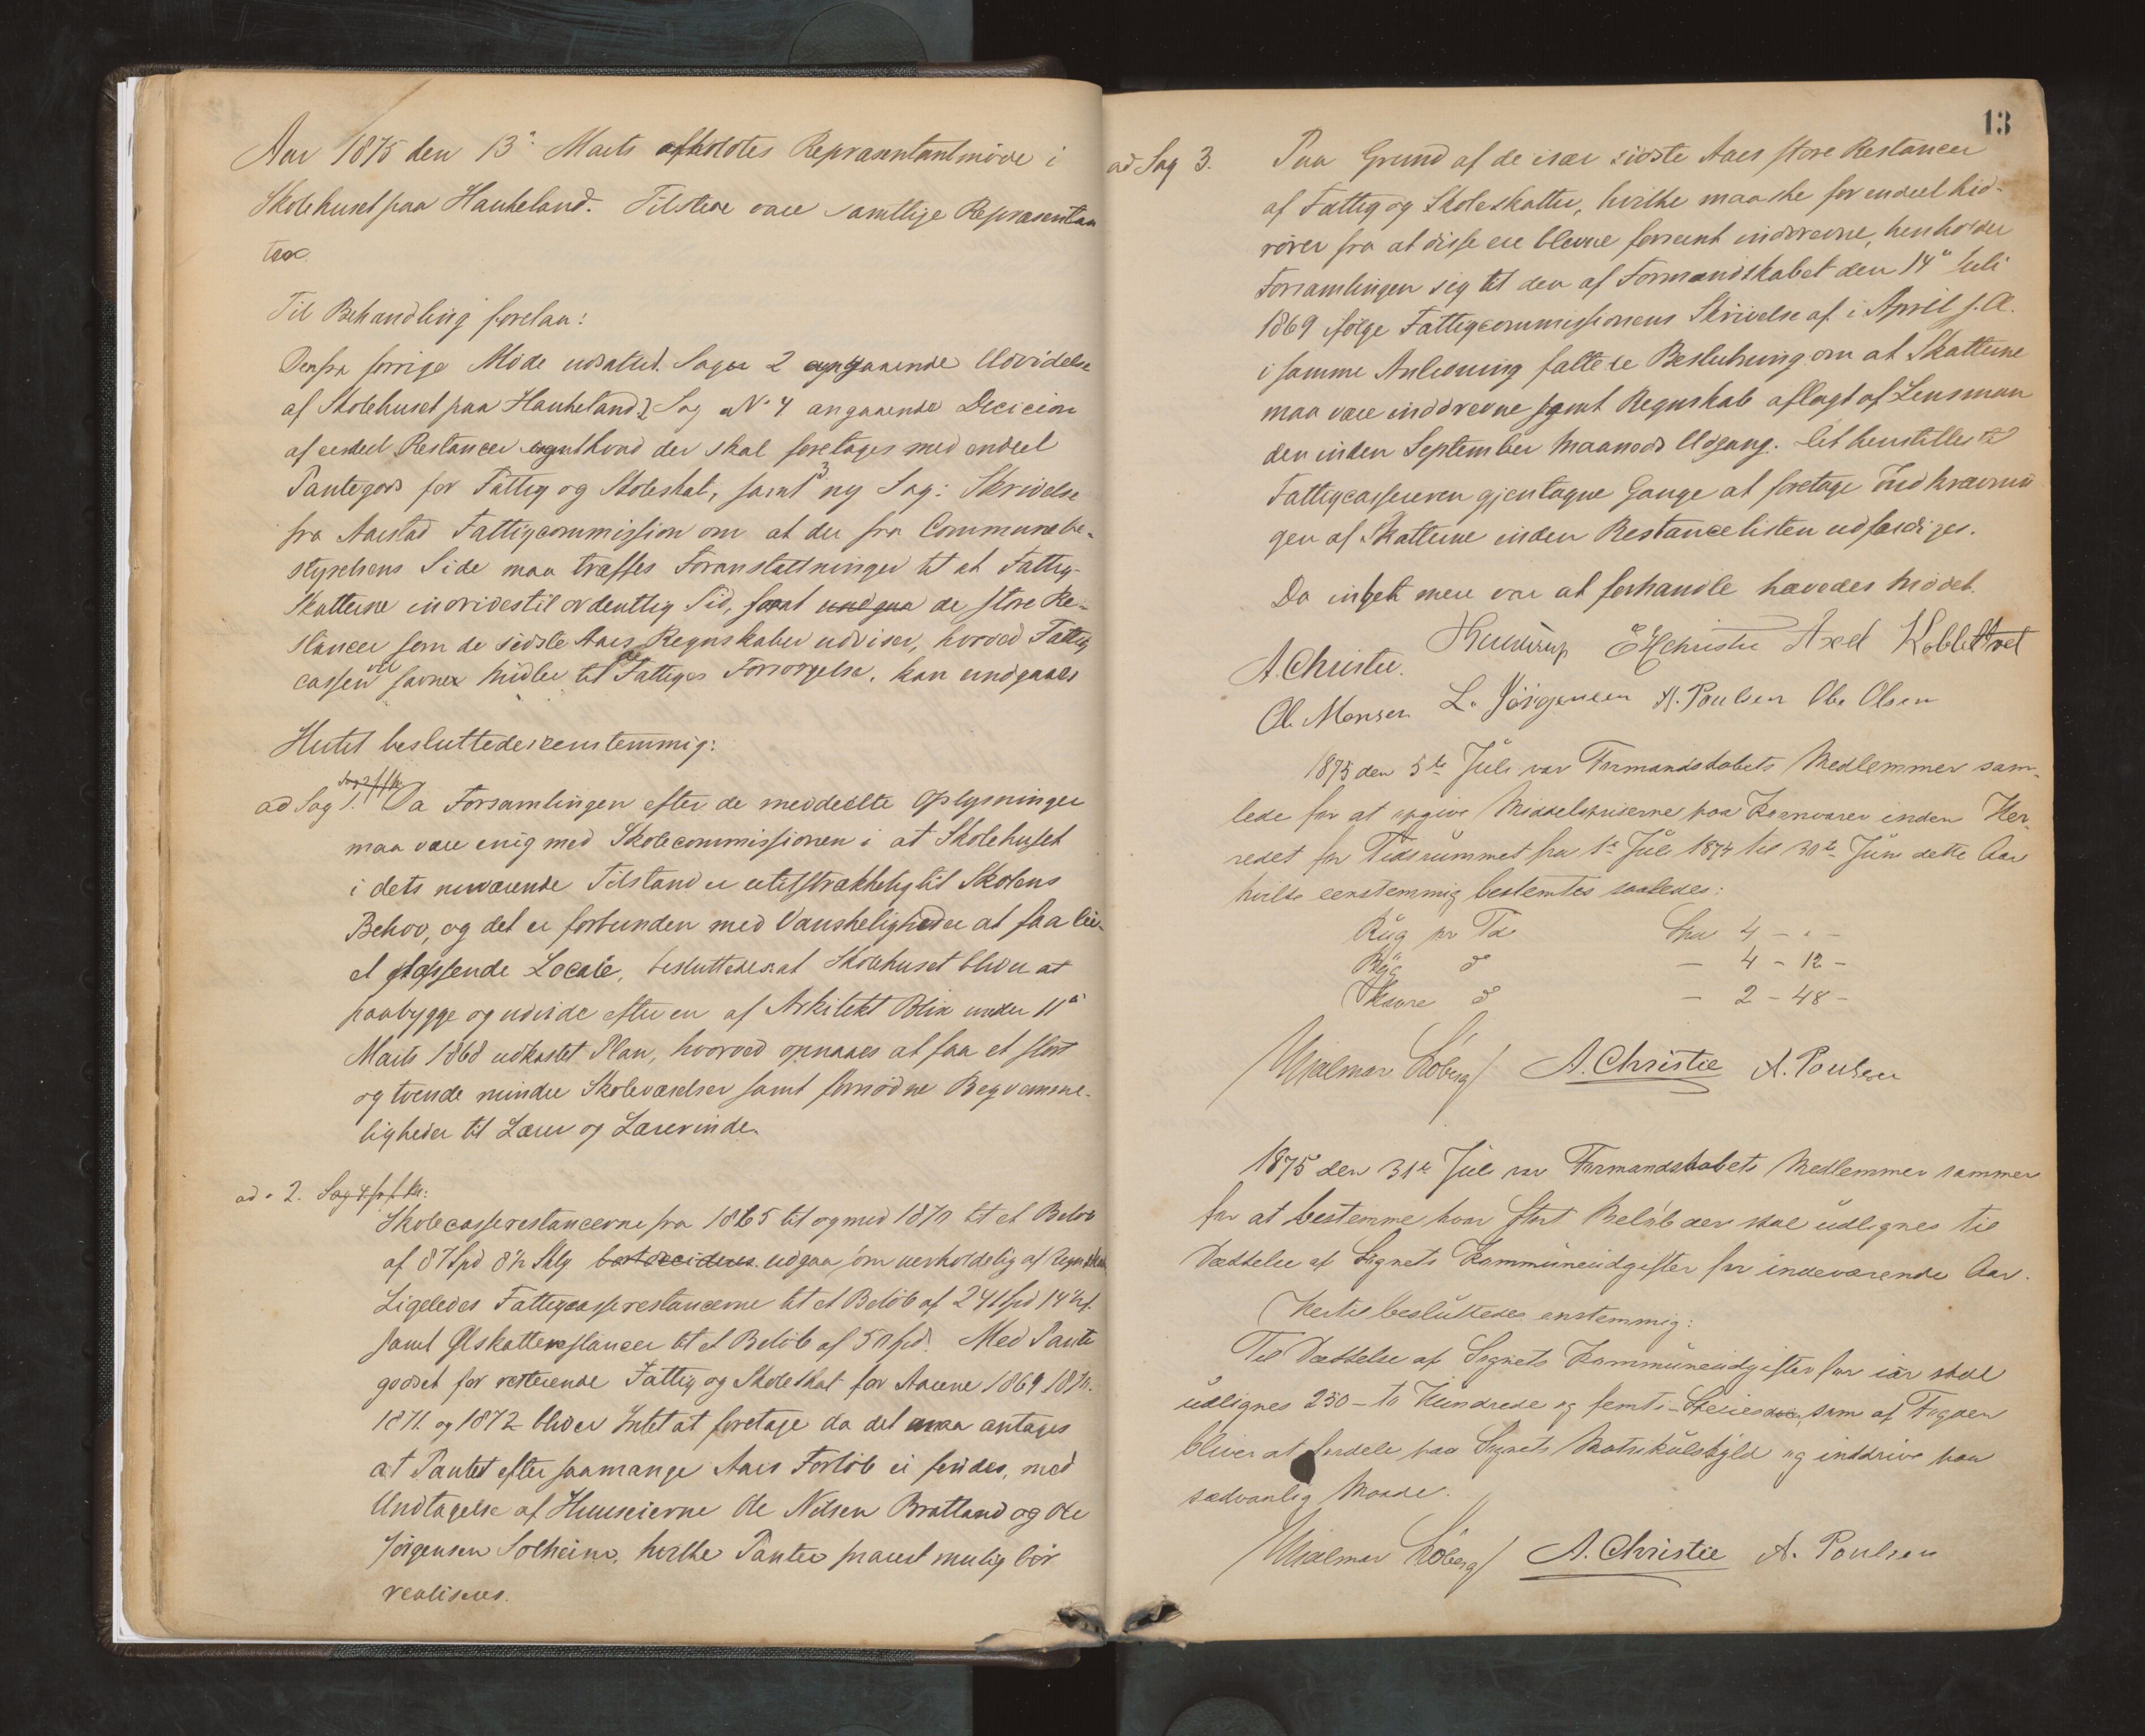 Aar 1875 den 13de Marts afholdtes Repræsentantmøde i
Skolehuset paa Haukeland. Tilstede vare samtlige Repræsentan
ter.
Til Behandling forelaa:
Den fra forrige Møde udsatte Sag 2 angaaende Udvidelse
af Skolehuset paa Haukeland, Sag No 4 angaaende Decicion
af eendeel Restancer samt hvad der skal foretages med endeel
Pantegods for Fattig og Skoleskat, samt 3 ny Sag: Skrivelse
fra Aarstad Fattigcommission om at der fra Communebe-
styrelsens Side maa træffes Foranstaltninger til at Fattig-
Skatterne inddrives til ordentlig Tid, samt undgaa de store Re-
stancer som de sidste Aars Regnskaber udviser, hvorved Fattig
cassen savner Midler til de Fattiges Forsørgelse, kan undgaaes
Hertil besluttedes eenstemmig:
ad Sag 1. Da Forsamlingen efter de meddeelte Oplysninger
maa være enig med Skolecommissionen i at Skolehuset
i dets nuværende Tilstand er utilstrækkelig til Skolens
Behov, og det er forbunden med Vanskeligheder at faa lei-
et passende Locale, besluttedes at Skolehuset bliver at
paabygge og udvide efter en af Arkitekt Blix under 11te
Marts 1868 udkastet Plan, hvorved opnaaes at faa et stort
og tvende mindre Skoleværelser samt fornødne Beqvemme-
ligheder til Lærer og Lærerinde.
ad " 2. Sag 4 f. f. M:
Skolecasserestancerne fra 1865 til og med 1870 til et Beløb
af 87 Spd 8½ Skg udgaa som uerholdelig af Regnskab
Ligeledes Fattigcasserestancerne til et Beløb af 241 Spd 14½ s.
samt Ølskatterestancer til et Beløb af 50 Spd. Med Pante
godset for resterende Fattig og Skoleskat for Aarene 1869 1870.
1871 og 1872 bliver Intet at foretage da det maa antages
at Pantet efter saamange Aars Forløb ei findes, med
Undtagelse af Huuseierne Ole Nilsen Bratland og Ole
Jörgensen Solheim, hvilke Panter snarest mulig bør
realiseres.
13
ad Sag 3. Paa Grund af de især sidste Aars store Restancer
af Fattig og Skoleskatter, hvilke maaske for endeel hid-
rører fra at disse ere blevne forseent inddrevne, henholder
Forsamlingen sig til den af Formandskabet den 14de Juli
1869 ifølge Fattigcommissionens Skrivelse af i April s. A.
i samme Anledning fattede Beslutning om at Skatterne
maa være inddrevne samt Regnskab aflagt af Lensman
den inden September Maaneds Udgang. Det henstilles til
Fattigcassereren gjentagne Gange at foretage Indkrævnin
gen af Skatterne inden Restancelisten udfærdiges.
Da intet mere var at forhandle hævedes Mødet.
A. Christie. E H Christie Axel Kobbeltvet
Ole Monsen L. Jörgensen A. Poulsen Ole Olsen
1875 den 5te Juli var Formandskabets Medlemmer sam-
lede for at opgive Middelpriserne paa Kornvarer inden Her-
redet for Tidsrummet fra 1ste Juli 1874 til 30te Juni dette Aar
hvilke eenstemmig bestemtes saaledes:
Rug pr Td Spd 4 - " -
Byg do — 4 - 12 -
Havre do — 2 - 48 -
Hjalmar Löberg A. Christie A. Poulsen
1875 den 31te Juli var Formandskabets Medlemmer sammen
for at bestemme hvor stort Beløb der skal udlignes til
Dækkelse af Sognets Kommuneudgifter for indeværende Aar.
Hertil besluttedes enstemmig:
Til Dækkelse af Sognets Kommuneudgifter for iaar skal
udlignes 250 — to Hundrede og femti — Species, som af Fogden
bliver at fordele paa Sognets Matrikulskyld og inddrive paa
sædvanlig Maade.
Hjalmar Löberg A. Christie A. Poulsen